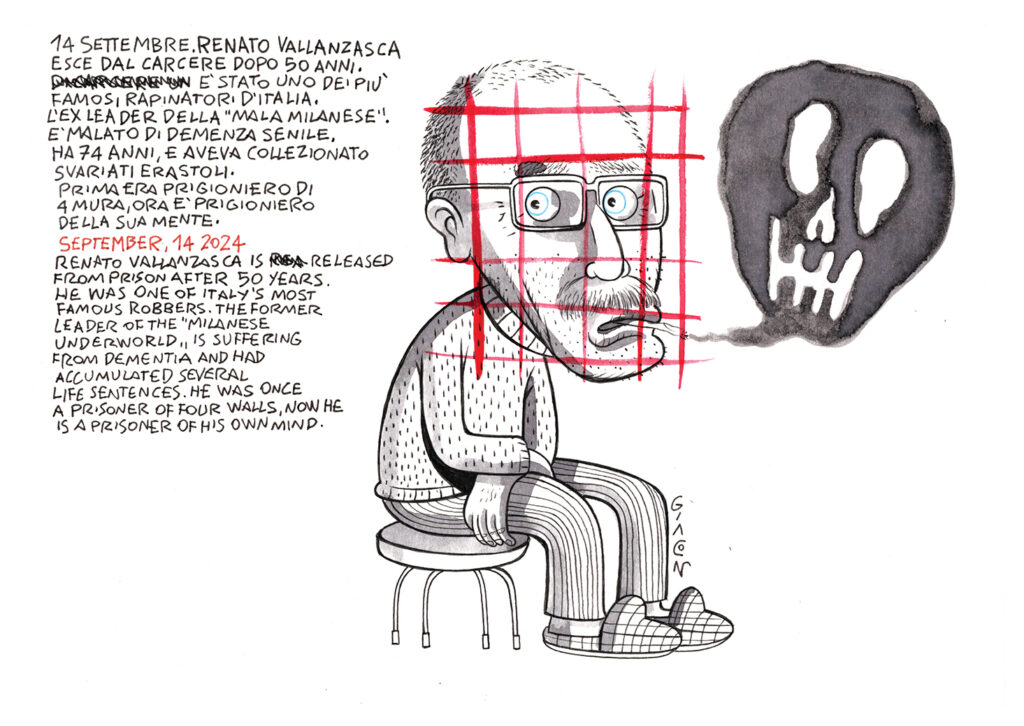 14 SETTEMBRE. RENATO VALLANZASCA
ESCE DAL CARCERE DOPO 50 ANNI.
E' STATO UNO DEI PIU'
FAMOSI RAPINATORI D'ITALIA.
L'EX LEADER DELLA "MALA MILANESE".
E' MALATO DI DEMENZA SENILE.
HA 74 ANNI, E AVEVA COLLEZIONATO
SVARIATI ERASTOLI.
PRIMA ERA PRIGIONIERO DI
4 MURA, ORA E' PRIGIONIERO
DELLA SUA MENTE.
SEPTEMBER, 14 2024
RENATO VALLANZASCA IS RELEASED
FROM PRISON AFTER 50 YEARS.
HE WAS ONE OF ITALY'S MOST
FAMOUS ROBBERS. THE FORMER
LEADER OF THE "MILANESE
UNDERWORLD„ IS SUFFERING
FROM DEMENTIA AND HAD
ACCUMULATED SEVERAL
LIFE SENTENCES. HE WAS ONCE
A PRISONER OF FOUR WALLS, NOW HE
IS A PRISONER OF HIS OWN MIND.
GIACON